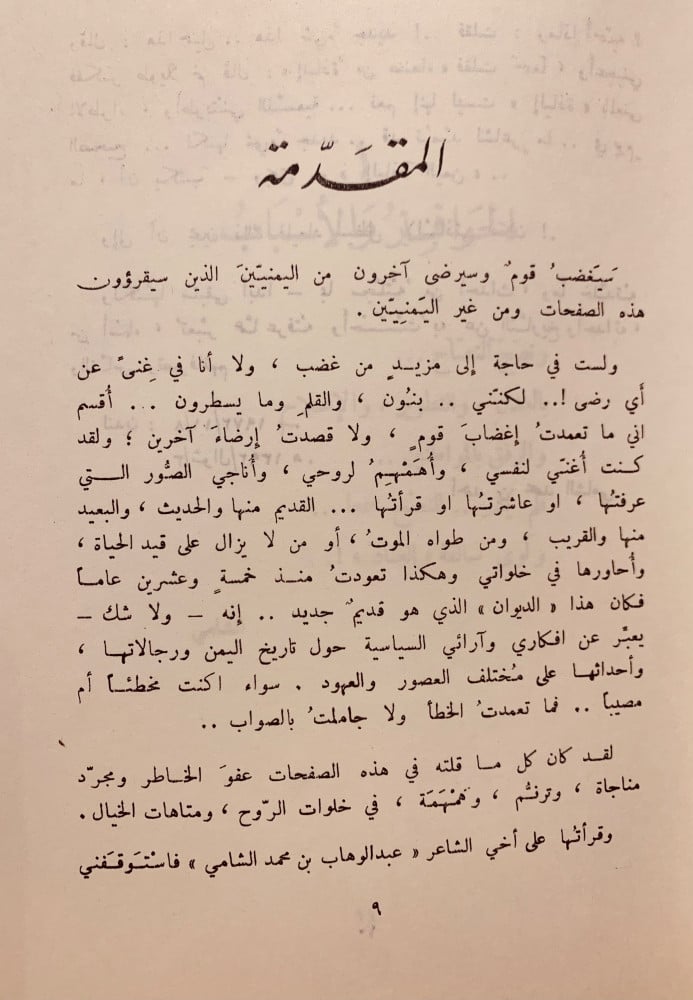 المقَدّمة
سَيَغضبُ قومٌ وسيرضى آخرون من اليمنيّينَ الذين سيقرؤون
هذه الصفحات ومن غير اليَمنِيّين .
ولست في حاجة إلى مزيدٍ من غضب ، ولا أنا في غِنىً عن
أي رضى !.. لكنّني .. بنُون ، والقلمِ وما يسطرون ... أُقسم
اني ما تعمدتُ إغضابَ قومٍ ، ولا قصدتُ إرضاءَ آخرين ؛ ولقد
كنت أُغنّي لنفسي ، وأُهَمْهِمُ لروحي ، وأُناجي الصُّور التي
عرفتُها ، او عاشرتُها او قرأتُها ... القديم منها والحديث ، والبعيد
منها والقريب ، ومن طواه الموتُ ، أو من لا يزال على قيد الحياة ،
وأُحاورها في خلواتي وهكذا تعودتُ منذ خمسةٍ وعشرين عاماً
فكان هذا « الديوان » الذي هو قديمٌ جديد .. إنه – ولا شك –
يعبّر عن افكاري وآرائي السياسية حول تاريخ اليمن ورجالاتها ،
وأحداثها على مُختلف العصور والعهود . سواء اكنت مخطئاً أم
مصيباً .. فما تعمدتُ الخطأ ولا جاملتُ بالصواب ..
لقد كان كل ما قلته في هذه الصفحات عفوَ الخاطر ومجرّد
مناجاة ، وترنُّم ، وهَمْهَمَة ، في خلوات الرّوح ، ومتاهات الخيال .
وقرأتُها على أخي الشاعر « عبدالوهاب بن محمد الشامي » فاسْتَوقَفني
٩